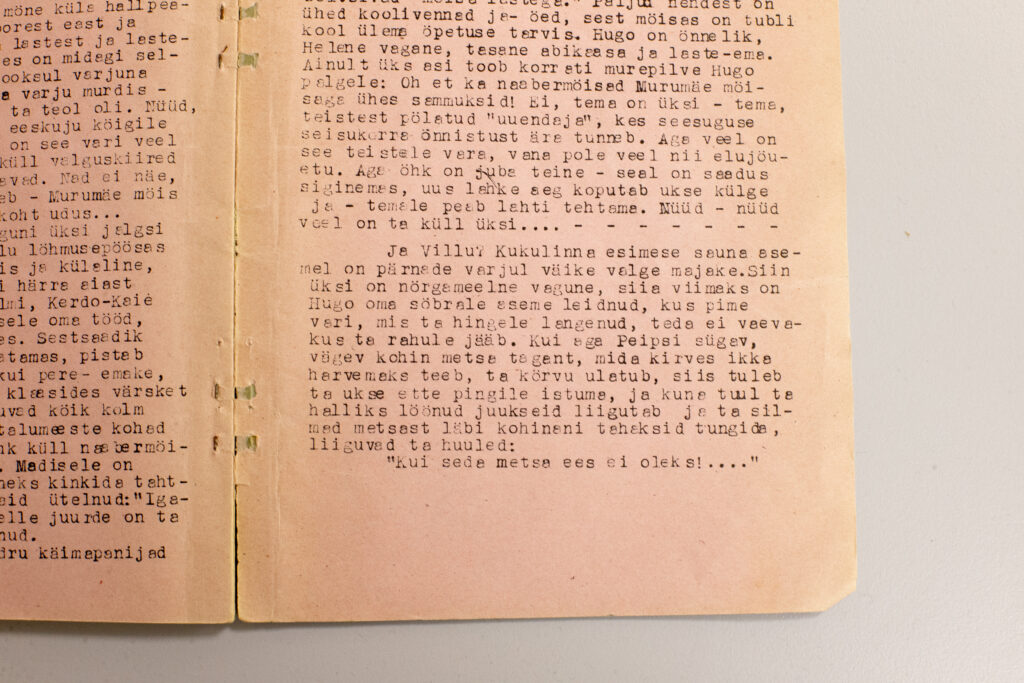 mõne küla hallpea-
porest east ja
lastest ja laste-
es on midagi sel-
ooksul varjuna
a varju murdis -
ta teol oli. Nüüd,
eeskuju kõigile
on see vari veel
küll valguskiired
avad. Nad ei näe,
eb - Murumäe mõis
koht udus...
guni üksi jalgsi
lu lõhmusepõõsas
is ja külaline,
i härra aiast
lmi, Kerdo-Kaie
sele oma tööd,
es. Sestsaadik
atamas, pistab
kui pere- emake,
klaasides värsket
uvad kõik kolm
talumeeste kohad
nk küll naabermõi-
. Madisele on
neks kinkida taht-
eid ütelnud:"Iga-
elle juurde on ta
nud.
dru käimapanijad
lastega." Paljun nendest on
ühed koolivennad ja- õed, sest mõisas on tubli
kool ülema õpetuse tarvis. Hugo on õnnelik,
Helene vagane, tasane abikaasa ja laste-ema.
Ainult üks asi toob korrati murepilve Hugo
palgele: Oh et ka naabermõisad Murumäe mõi-
saga ühes sammuksid! Ei, tema on üksi - tema,
teistest põlatud "uuendaja", kes seesuguse
seisukorra õnnistust ära tunneb. Aga veel on
see teistele vara, vana pole veel nii elujõu-
etu. Aga õhk on juba teine - seal on saadus
siginemas, uus lahke aeg koputab ukse külge
ja - temale peab lahti tehtama. Nüüd - nüüd
veel on ta küll üksi.... - - - - - - -
Ja Villu? Kukulinna esimese sauna ase-
mel on pärnade varjul väike valge majake.Siin
üksi on nõrgameelne vagune, siia viimaks on
Hugo oma sõbrale aseme leidnud, kus pime
vari, mis ta hingele langenud, teda ei vaeva-
kus ta rahule jääb. Kui aga Peipsi sügav,
vägev kohin metsa tagant, mida kirves ikka
harvemaks teeb, ta kõrvu ulatub, siis tuleb
ta ukse ette pingile istuma, ja kuna tuul ta
halliks löönud juukseid liigutab ja ta sil-
mad metsast läbi kohinani tahaksid tungida,
liiguvad ta huuled:
"Kui seda metsa ees ei oleks!...."